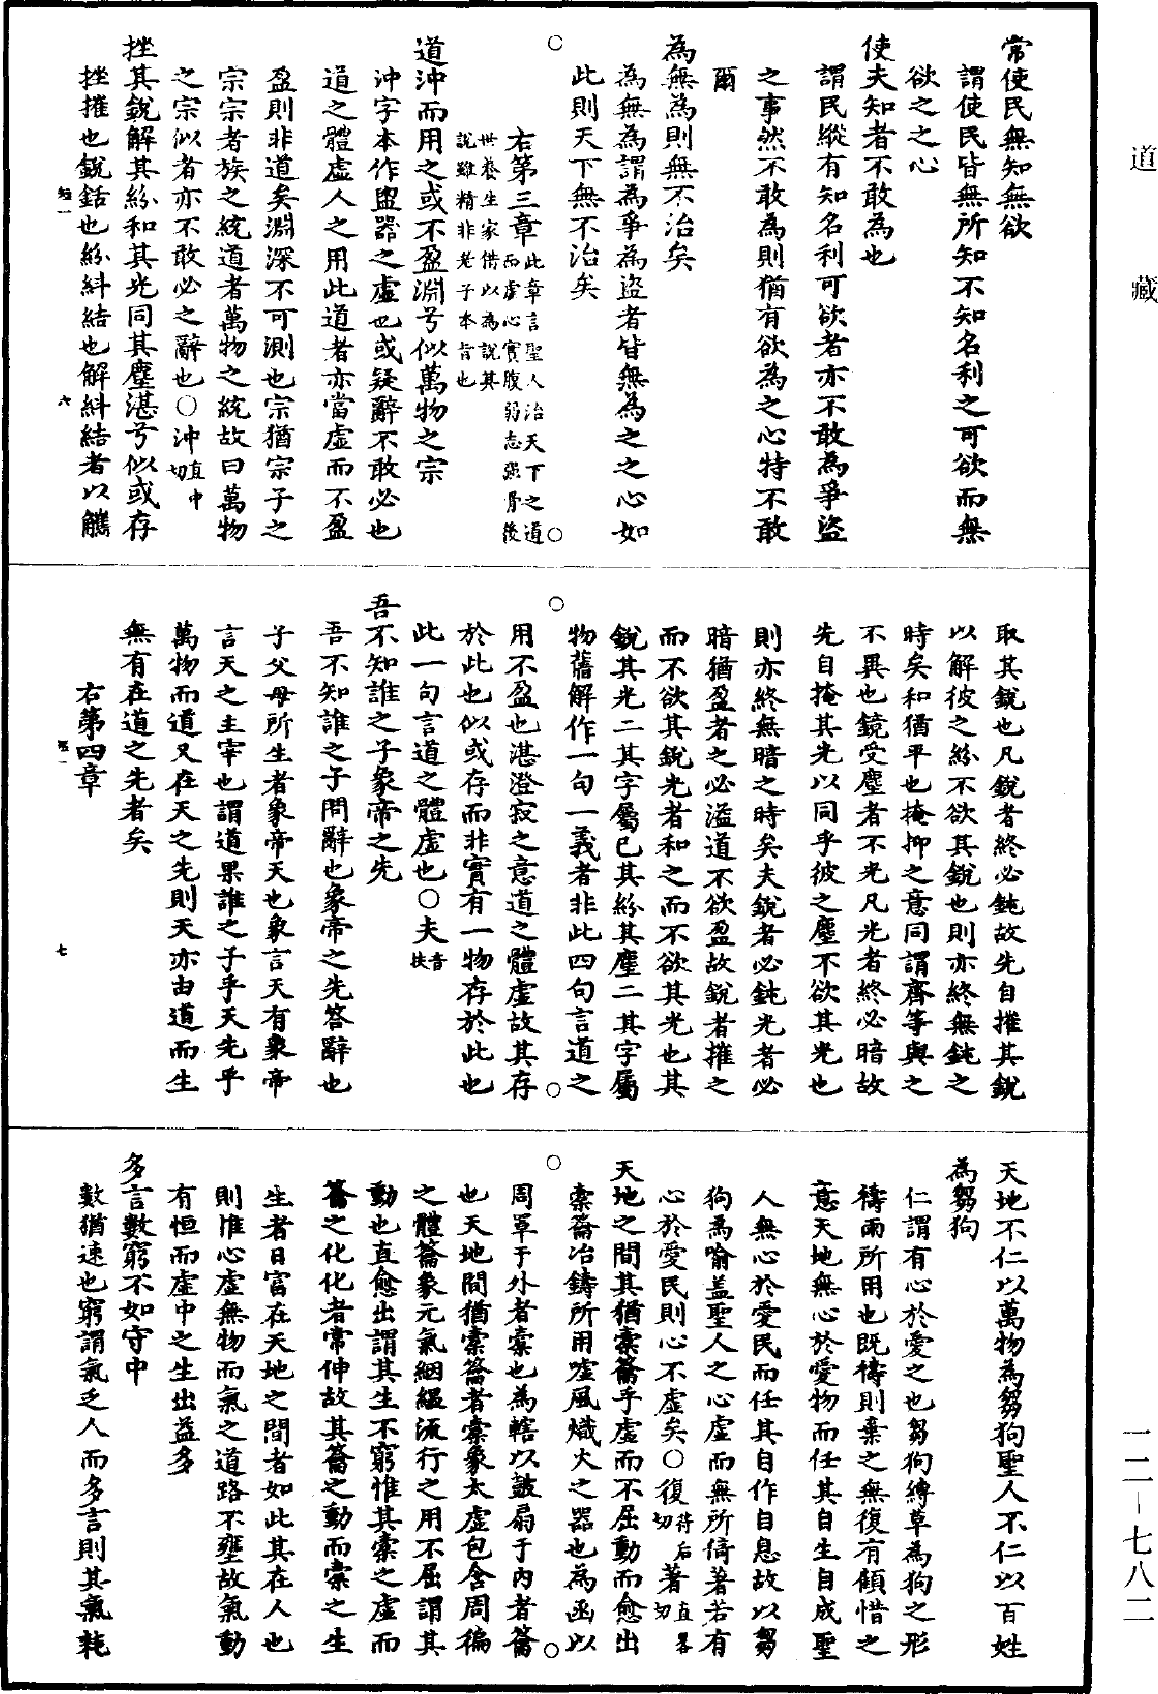 道藏
常使民無知無欲
謂使民皆無所知不知名利之可欲而無
欲之之心
使夫知者不敢為也
謂民縱有知名利可欲者亦不敢為爭盜
之事然不敢為則猶有欲為之心特不敢
爾
為無為則無不治矣
為無為謂為爭為盜者皆無為之之心如
此則天下無不治矣
右第三章此章言聖人治天下之道
而虛心實腹弱志強骨後
世養生家借以為說其
說雖精非老子本旨也
道沖而用之或不盈淵兮似萬物之宗
沖字本作盅器之虛也或疑辭不敢必也
道之體虛人之用此道者亦當虛而不盈
盈則非道矣淵深不可測也宗猶宗子之
宗宗者族之統道者萬物之統故曰萬物
之宗似者亦不敢必之辭也○沖直中切
挫其銳解其紛和其光同其塵湛兮似或存
挫摧也銳銛也紛糾結也解糾結者以觿
六
取其銳也凡銳者終必鈍故先自摧其銳
以解彼之紛不欲其銳也則亦終無鈍之
時矣和猶平也掩抑之意同謂齊等與之
不異也鏡受塵者不光凡光者終必暗故
先自掩其光以同乎彼之塵不欲其光也
則亦終無暗之時矣夫銳者必鈍光者必
暗猶盈者之必溢道不欲盈故銳者摧之
而不欲其銳光者和之而不欲其光也其
銳其光二其字屬己其紛其塵二其字屬
物舊解作一句一義者非此四句言道之
用不盈也湛澄寂之意道之體虛故其存
於此也似或存而非實有一物存於此也
此一句言道之體虛也○夫音扶
吾不知誰之子象帝之先
吾不知誰之子問辭也象帝之先答辭也
子父母所生者象帝天也象言天有象帝
言天之主宰也謂道果誰之子乎天先乎
萬物而道又在天之先則天亦由道而生
無有在道之先者矣
右第四章
七
天地不仁以萬物為芻狗聖人不仁以百姓
為芻狗
仁謂有心於愛之也芻狗縛草為狗之形
禱雨所用也既禱則棄之無復有顧惜之
意天地無心於愛物而任其自生自成聖
人無心於愛民而任其自作自息故以芻
狗為喻蓋聖人之心虛而無所倚著若有
心於愛民則心不虛矣○復待后切著直畧切
天地之間其猶橐籥乎虛而不屈動而愈出
橐籥冶鑄所用噓風熾火之器也為函以
周罩于外者橐也為轄以鼓扇于內者籥
也天地間猶橐籥者橐象太虛包含周徧
之體籥象元氣絪縕流行之用不屈謂其
動也直愈出謂其生不窮惟其橐之虛而
籥之化化者常伸故其籥之動而橐之生
生者日富在天地之間者如此其在人也
則惟心虛無物而氣之道路不壅故氣動
有恒而虛中之生出益多
多言數窮不如守中
數猶速也窮謂氣乏人而多言則其氣耗
一二-七八二